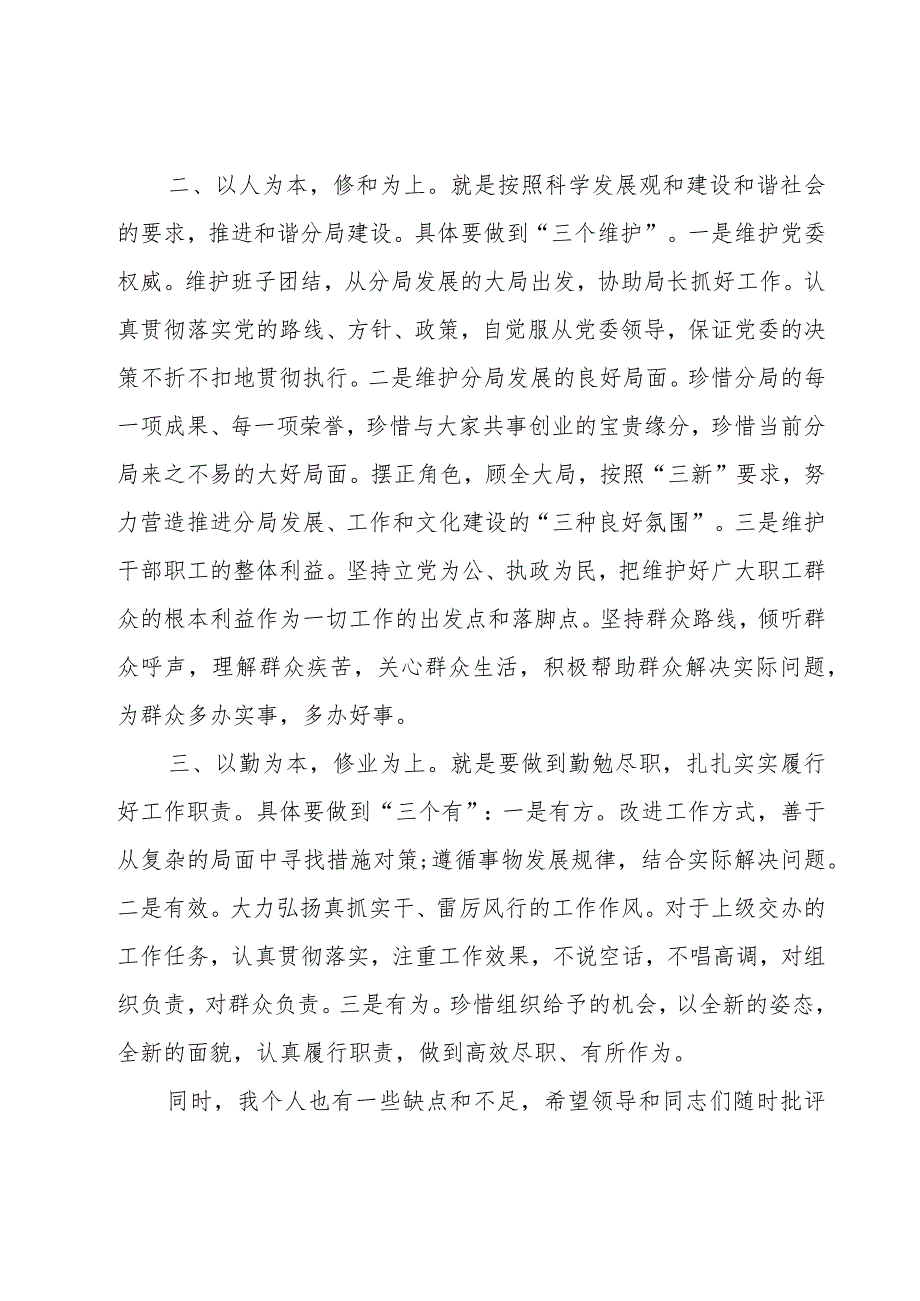 二、以人为本，修和为上。就是按照科学发展观和建设和谐社会
的要求，推进和谐分局建设。具体要做到“三个维护”。一是维护党委
权威。维护班子团结，从分局发展的大局出发，协助局长抓好工作。认
真贯彻落实党的路线、方针、政策，自觉服从党委领导，保证党委的决
策不折不扣地贯彻执行。二是维护分局发展的良好局面。珍惜分局的每
一项成果、每一项荣誉，珍惜与大家共事创业的宝贵缘分，珍惜当前分
局来之不易的大好局面。摆正角色，顾全大局，按照“三新”要求，努
力营造推进分局发展、工作和文化建设的“三种良好氛围”。三是维护
干部职工的整体利益。坚持立党为公、执政为民，把维护好广大职工群
众的根本利益作为一切工作的出发点和落脚点。坚持群众路线，倾听群
众呼声，理解群众疾苦，关心群众生活，积极帮助群众解决实际问题，
为群众多办实事，多办好事。
三、以勤为本，修业为上。就是要做到勤勉尽职，扎扎实实履行
好工作职责。具体要做到“三个有”：一是有方。改进工作方式，善于
从复杂的局面中寻找措施对策;遵循事物发展规律，结合实际解决问题。
二是有效。大力弘扬真抓实干、雷厉风行的工作作风。对于上级交办的
工作任务，认真贯彻落实，注重工作效果，不说空话，不唱高调，对组
织负责，对群众负责。三是有为。珍惜组织给予的机会，以全新的姿态，
全新的面貌，认真履行职责，做到高效尽职、有所作为。
同时，我个人也有一些缺点和不足，希望领导和同志们随时批评